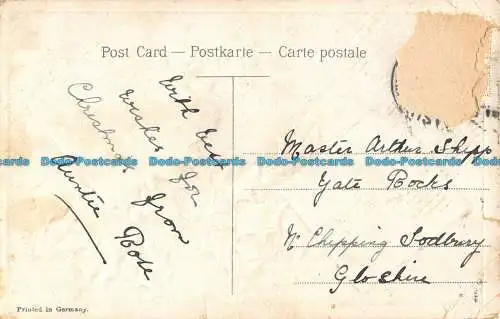 Post Card — Postkarte — Carte postale
With best
wishes for
Christmas from
Auntie Rose
Master Arthur Shipp
Gate Rocks
Nr Chipping Sodbury
Gloshire
Dodo-Postcards Dodo-Postcards Dodo-Postcards Dodo-Postcards Dodo-Postcards
Printed in Germany.